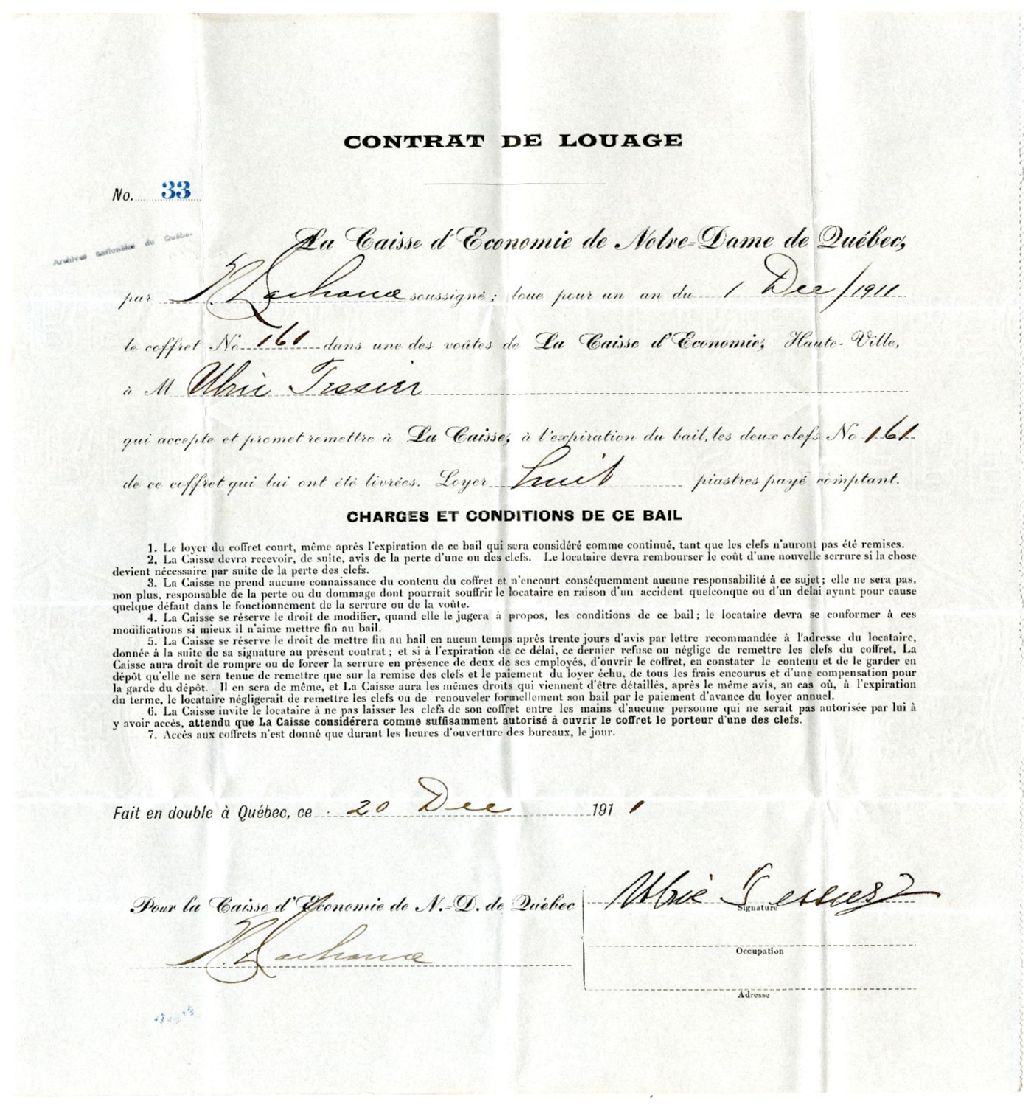 CONTRAT DE LOUAGE
No. 33
Archives nationales du Québec
La Caisse d'Economie de Notre-Dame de Québec,
par Lachance soussigné; loue pour un an du 1 Dec/1911
le coffret No 161 dans une des voûtes de La Caisse d'Economie, Haute-Ville,
à M Ulric Tessier
qui accepte et promet remettre à La Caisse, à l'expiration du bail, les deux clefs No 161
de ce coffret qui lui ont été livrées. Loyer huit piastres payé comptant.
CHARGES ET CONDITIONS DE CE BAIL
1. Le loyer du coffret court, même après l'expiration de ce bail qui sera considéré comme continué, tant que les clefs n'auront pas été remises.
2. La Caisse devra recevoir, de suite, avis de la perte d'une ou des clefs. Le locataire devra rembourser le coût d'une nouvelle serrure si la chose
devient nécessaire par suite de la perte des clefs.
3. La Caisse ne prend aucune connaissance du contenu du coffret et n'encourt conséquemment aucune responsabilité à ce sujet; elle ne sera pas,
non plus, responsable de la perte ou du dommage dont pourrait souffrir le locataire en raison d'un accident quelconque ou d'un délai ayant pour cause
quelque défaut dans le fonctionnement de la serrure ou de la voûte.
4. La Caisse se réserve le droit de modifier, quand elle le jugera à propos, les conditions de ce bail; le locataire devra se conformer à ces
modifications si mieux il n'aime mettre fin au bail.
5. La Caisse se réserve le droit de mettre fin au bail en aucun temps après trente jours d'avis par lettre recommandée à l'adresse du locataire,
donnée à la suite de sa signature au présent contrat; et si à l'expiration de ce délai, ce dernier refuse ou néglige de remettre les clefs du coffret, La
Caisse aura droit de rompre ou de forcer la serrure en présence de deux de ses employés, d'ouvrir le coffret, en constater le contenu et de le garder en
dépôt qu'elle ne sera tenue de remettre que sur la remise des clefs et le paiement du loyer échu, de tous les frais encourus et d'une compensation pour
la garde du dépôt. Il en sera de même, et La Caisse aura les mêmes droits qui viennent d'être détaillés, après le même avis, au cas où, à l'expiration
du terme, le locataire négligerait de remettre les clefs ou de renouveler formellement son bail par le paiement d'avance du loyer annuel.
6. La Caisse invite le locataire à ne pas laisser les clefs de son coffret entre les mains d'aucune personne qui ne serait pas autorisée par lui à
y avoir accès, attendu que La Caisse considérera comme suffisamment autorisé à ouvrir le coffret le porteur d'une des clefs.
7. Accès aux coffrets n'est donné que durant les heures d'ouverture des bureaux, le jour.
Fait en double à Québec, ce 20 Dec 1911
Pour la Caisse d'Economie de N.-D. de Québec
Ulric Tessier
Signature
Lachance
Occupation
Adresse